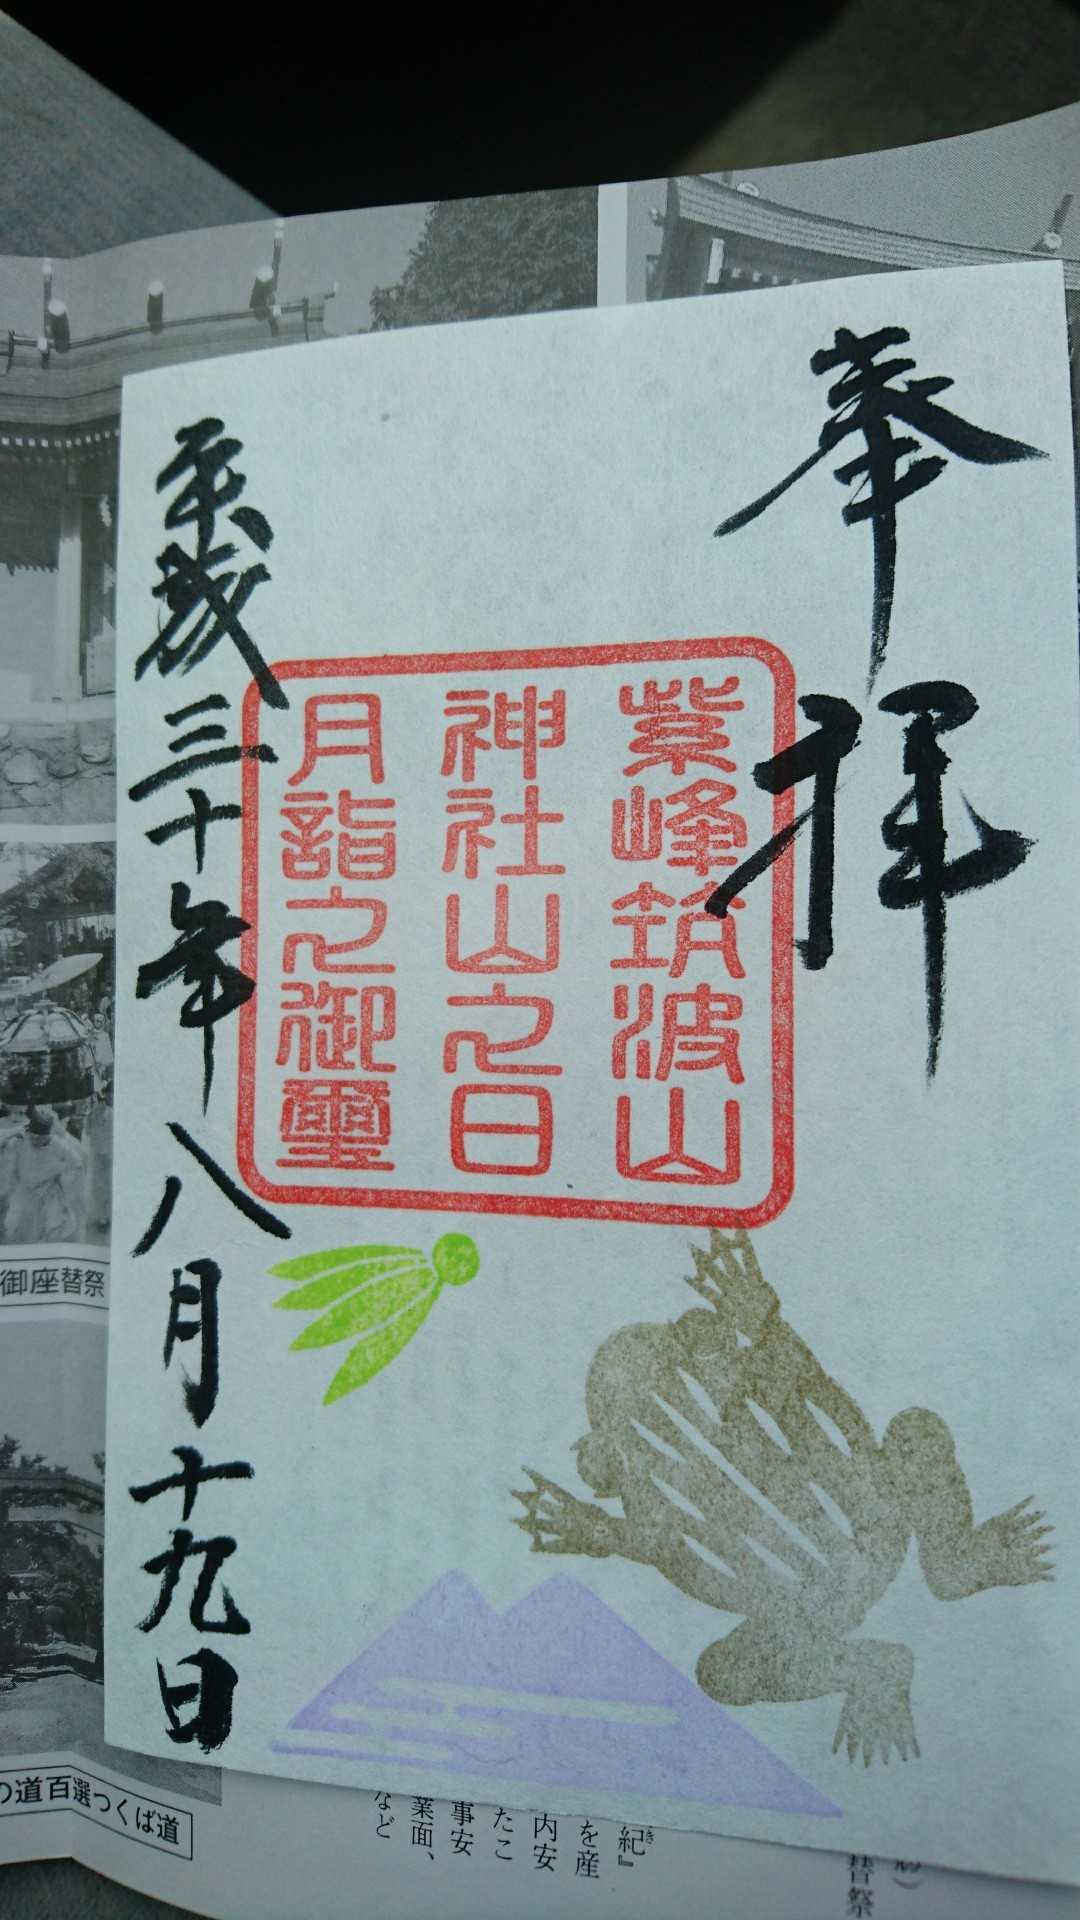 奉拝
紫峰筑波山
神社山之日
月詣之御璽
平成三十年八月十九日
御座替祭
の道百選つくば道
紀』
き
を産
内安
たこ
事安
業面、
など
替祭